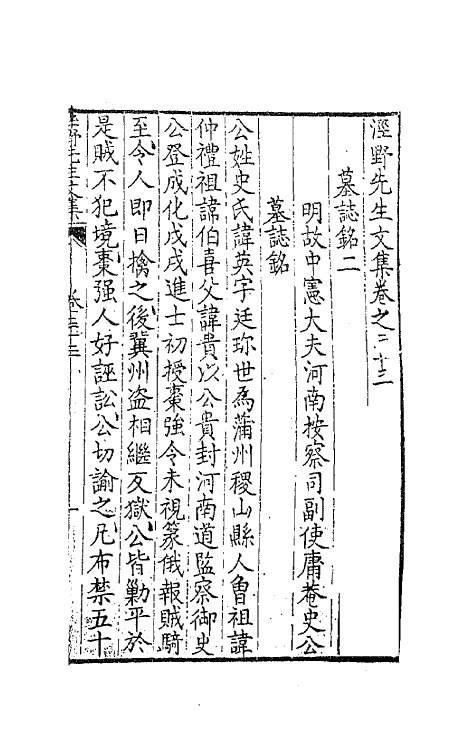 涇野先生文集卷之二十三
墓誌銘二
明故中憲大夫河南按察司副使庸菴史公
墓誌銘
公姓史氏諱英字廷珎世爲蒲州稷山縣人曾祖諱
仲禮祖諱伯喜父諱貴以公貴封河南道監察御史
公登成化戊戌進士初授棗强令未視篆俄報賊騎
至令人即日擒之後兾州盗相繼反獄公皆勦平於
是賊不犯境棗强人好誣訟公切諭之凡布禁五十
涇野先生文集 卷二十三 一